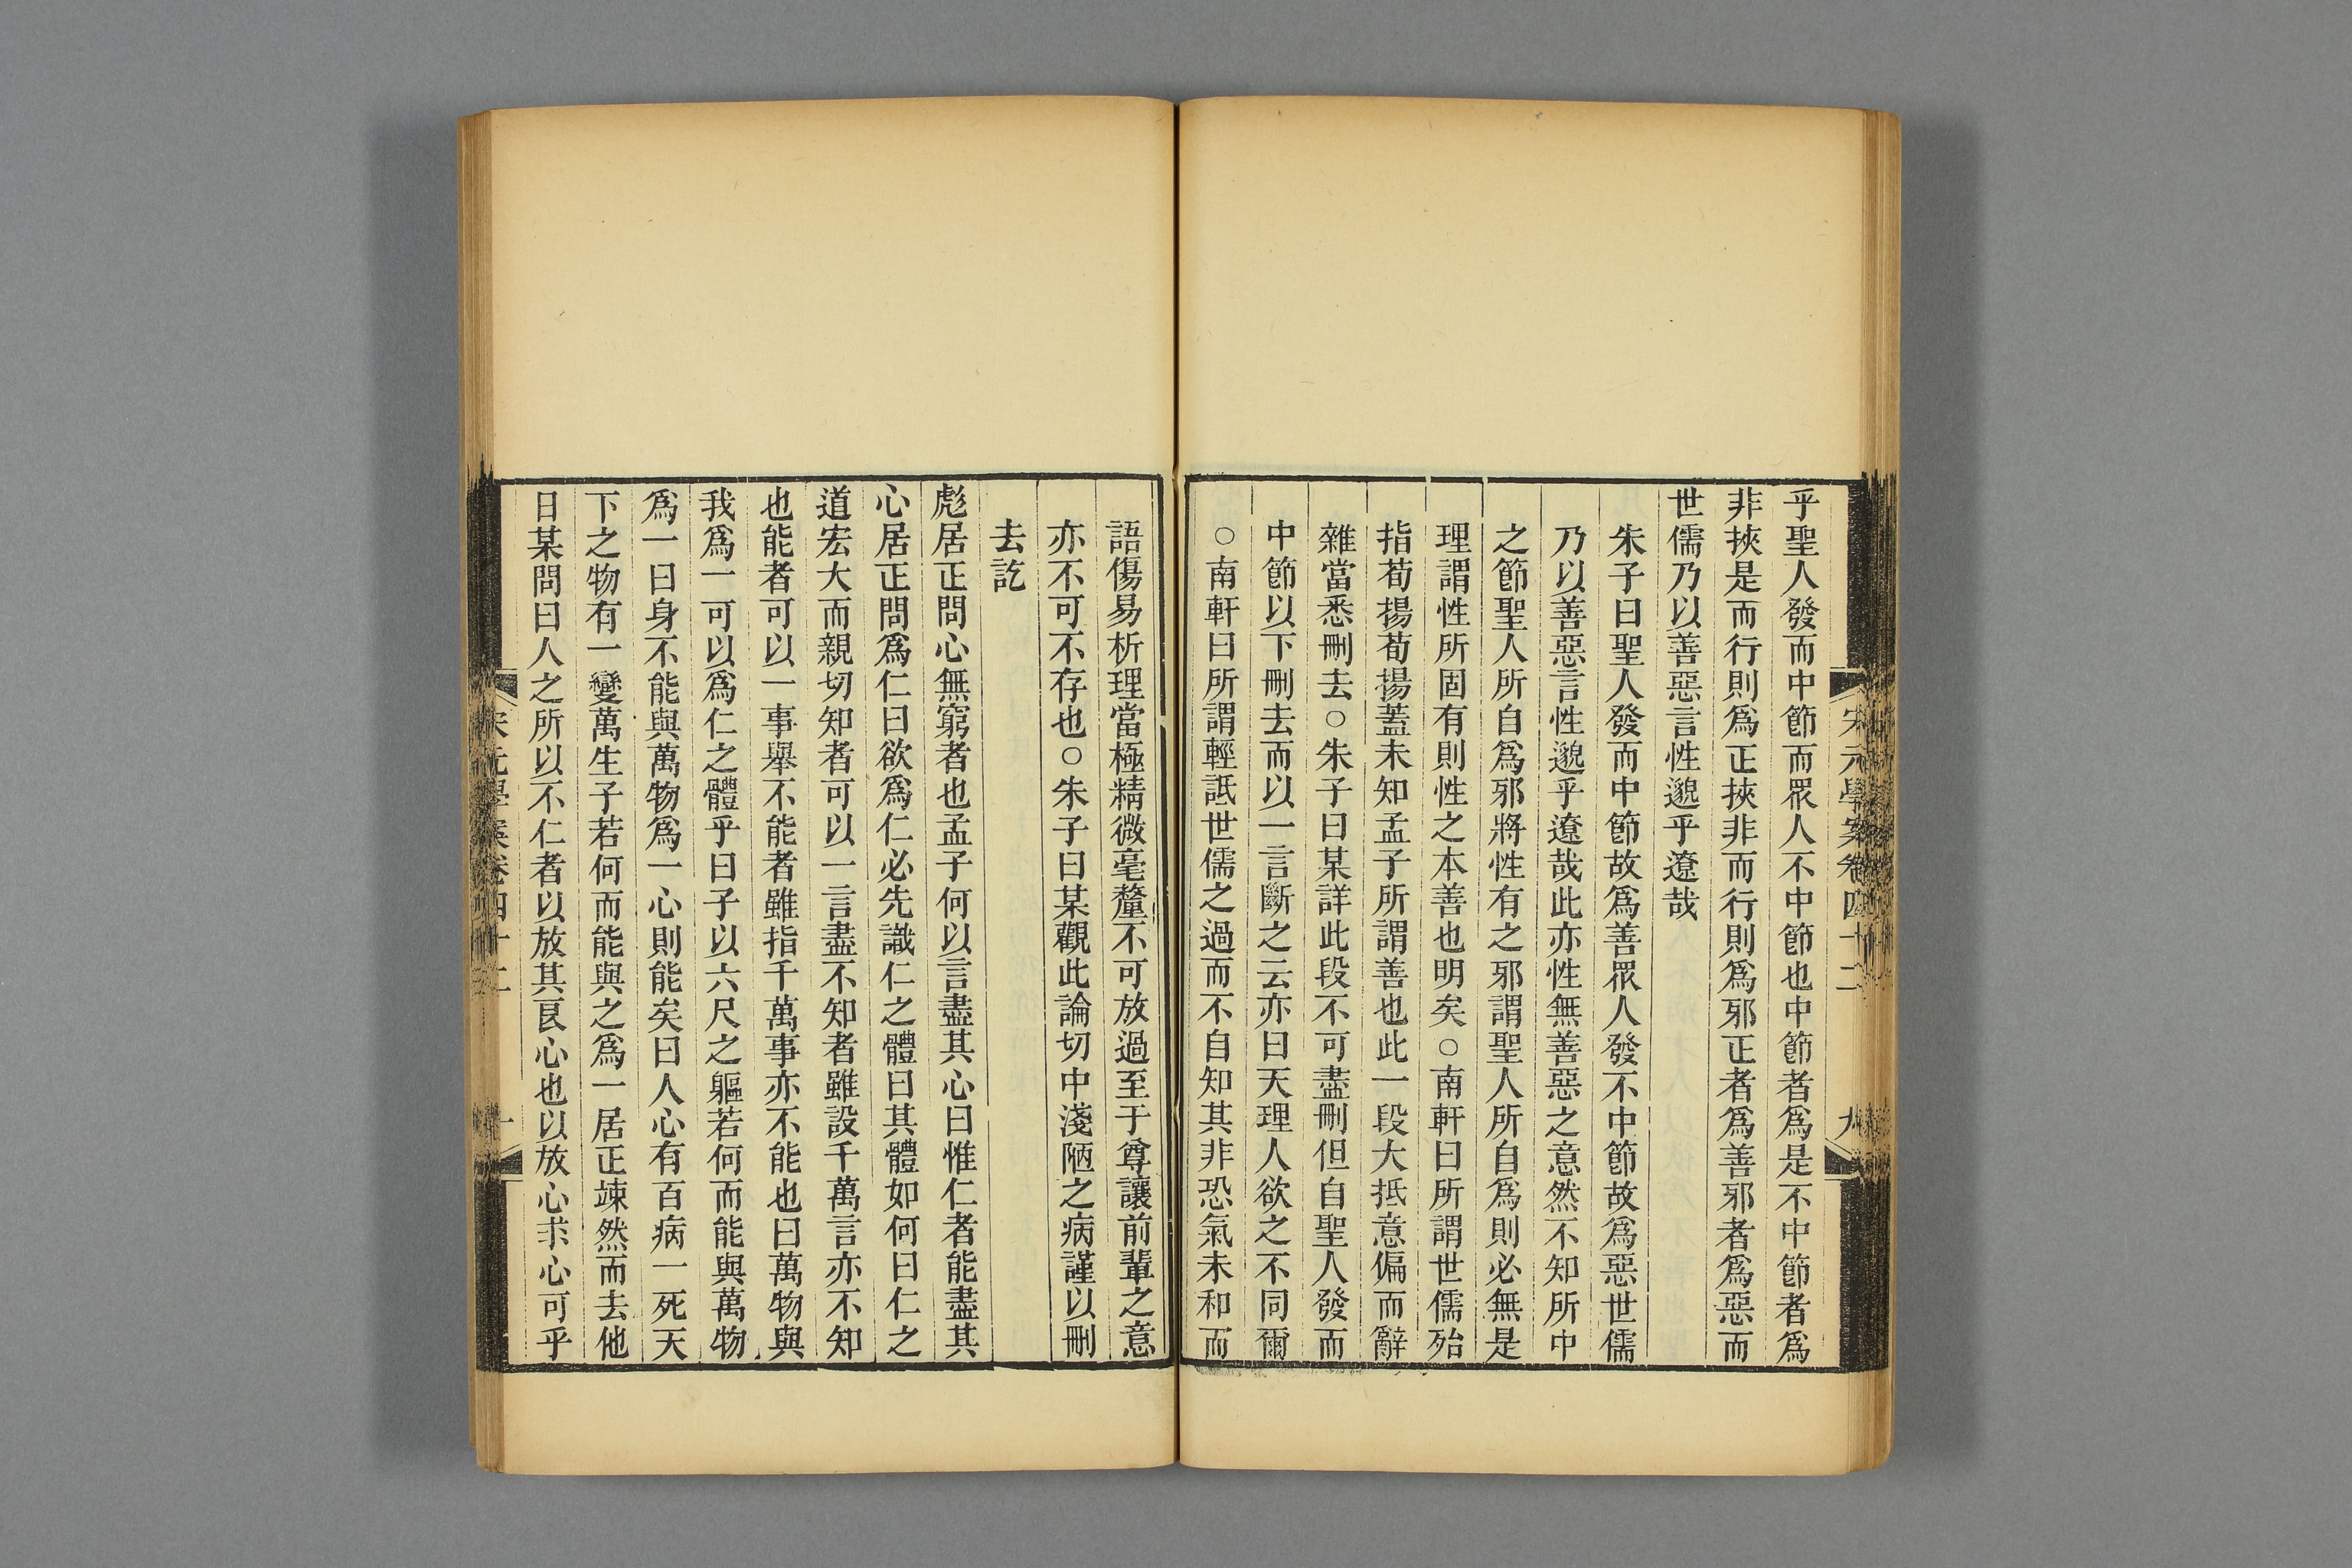 宋元學案卷四十二
九
乎聖人發而中節而眾人不中節也中節者爲是不中節者爲
非挾是而行則爲正挾非而行則爲邪正者爲善邪者爲惡而
世儒乃以善惡言性邈乎遼哉
朱子曰聖人發而中節故爲善眾人發不中節故爲惡世儒
乃以善惡言性邈乎遼哉此亦性無善惡之意然不知所中
之節聖人所自爲邪將性有之邪謂聖人所自爲則必無是
理謂性所固有則性之本善也明矣○南軒曰所謂世儒殆
指荀揚荀揚蓋未知孟子所謂善也此一段大抵意偏而辭
雜當悉刪去○朱子曰某詳此段不可盡刪但自聖人發而
中節以下刪去而以一言斷之云亦曰天理人欲之不同爾
○南軒曰所謂輕詆世儒之過而不自知其非恐氣未和而
語傷易析理當極精微毫釐不可放過至于尊讓前輩之意
亦不可不存也○朱子曰某觀此論切中淺陋之病謹以刪
去訖
彪居正問心無窮者也孟子何以言盡其心曰惟仁者能盡其
心居正問爲仁曰欲爲仁必先識仁之體曰其體如何曰仁之
道宏大而親切知者可以一言盡不知者雖設千萬言亦不知
也能者可以一事舉不能者雖指千萬事亦不能也曰萬物與
我爲一可以爲仁之體乎曰子以六尺之軀若何而能與萬物
爲一曰身不能與萬物爲一心則能矣曰人心有百病一死天
下之物有一變萬生子若何而能與之爲一居正竦然而去他
日某問曰人之所以不仁者以放其良心也以放心求心可乎
宋元學案卷四十二
十